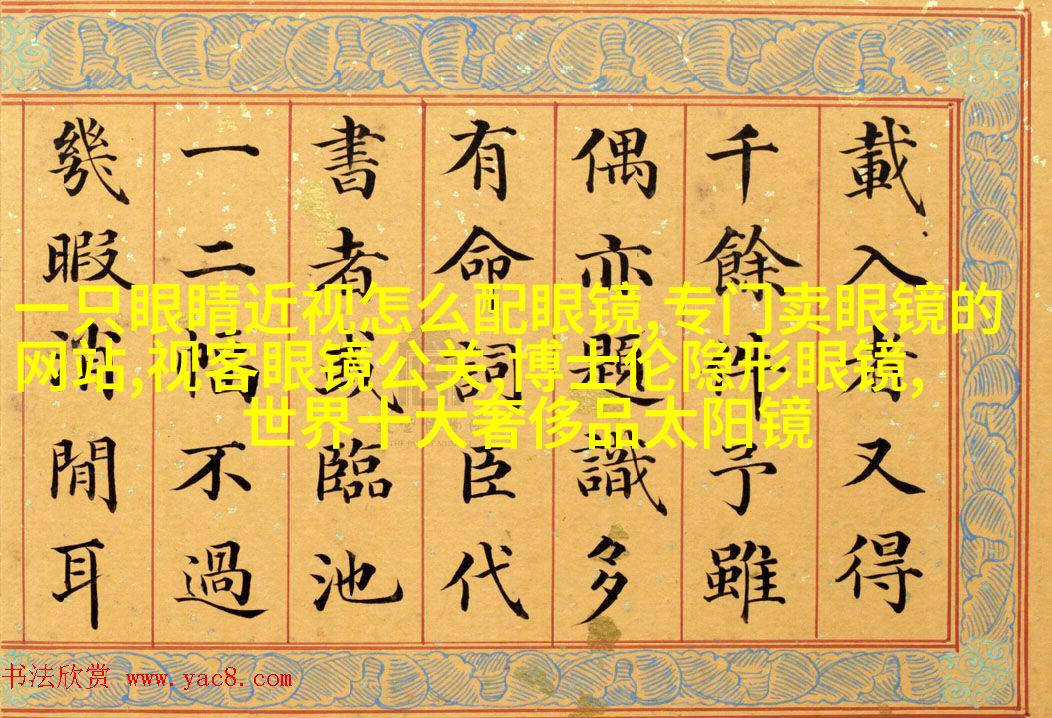 載入者又得
千餘件予雖
偶亦題識多
有命詞臣代
書者或臨池
一二幅不過
幾暇消閒耳
一只眼睛近视怎么配眼镜,专门卖眼镜的
网站,视客眼镜公关,博士伦隐形眼镜,
世界十大奢侈品太阳镜
书法欣赏 www.yac8.com